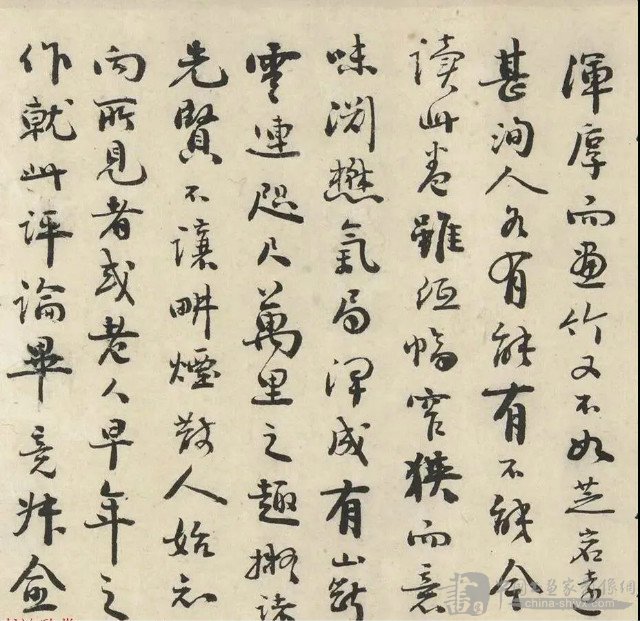 渾厚而畫竹又不如芝岩遠
甚洵人各有能有不能今
讀此卷雖紙幅窄狹而意
味渊懋氣局渾成有山斷
雲連咫尺萬里之趣擬諸
先賢不讓畊煙散人始知
向所見者或老人早年之
作就此評論畢竟
china-shyx.com